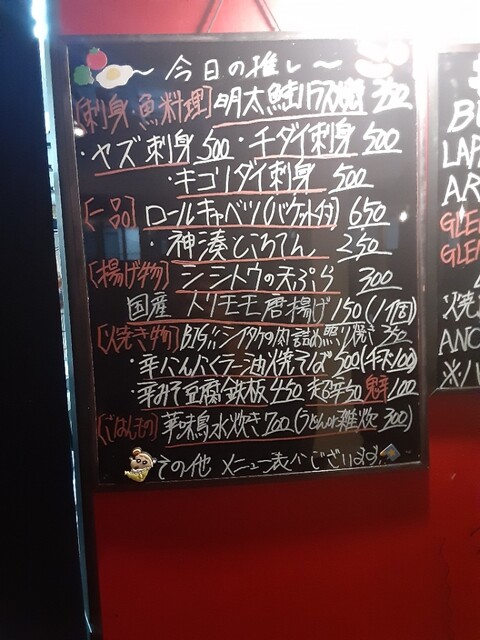 ～今日の推し～
[刺身・魚料理] 明太鮭ハラス焼 350
・ヤズ刺身 500 ・チダイ刺身 500
・キゴリダイ刺身 500
[一品] ロールキャベツ(バケット付) 650
・神湊ところてん 250
[揚げ物] シシトウの天ぷら 300
国産 トリモモ唐揚げ 150 (1個)
[焼き物] BIGシイタケの肉詰め照り焼き 350
・辛にんにくラー油焼そば 500 (チーズ100)
辛みそ豆腐鉄板 450 超辛50 鬼辛100
[ごはんもの] 華味鳥水炊き 700 (うどんor雑炊 300)
その他 メニュー表がございます!
B
LAP
AR
GLE
GLE
火焼
ANC
※ハ